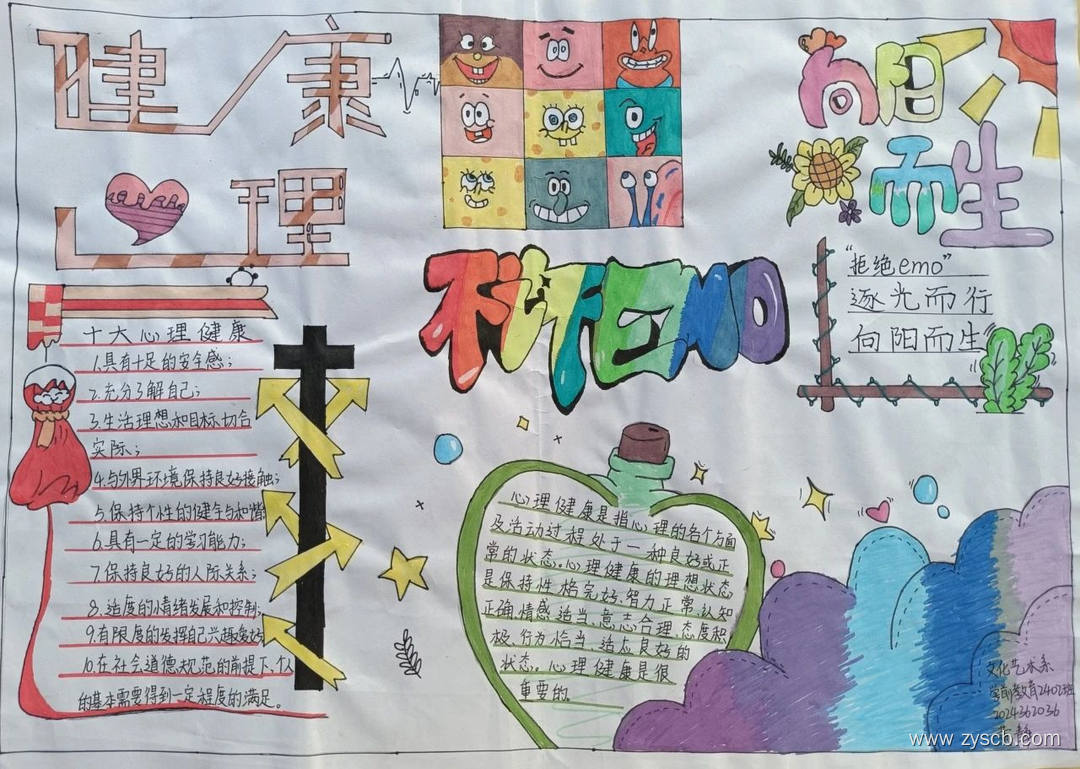 健康
心理
向阳
而生
"拒绝emo"
逐光而行
向阳而生
不许EMO
十大心理健康
1.具有十足的安全感;
2.充分了解自己;
3.生活理想和目标切合
实际;
4.与外界环境保持良好接触;
5.保持个性的健全与和谐
6.具有一定的学习能力;
7.保持良好的人际关系;
8.适度的情绪发展和控制;
9.有限度的发挥自己兴趣爱好
10.在社会道德规范的前提下,个人
的基本需要得到一定程度的满足。
心理健康是指心理的各个方面
及活动过程处于一种良好或正
常的状态。心理健康的理想状态
是保持性格完好、智力正常、认知
正确、情感适当、意志合理、态度积
极、行为恰当、适应良好的
状态。心理健康是很
重要的。
文化艺术系
学前教育2402班
2024362036
www.zyscb.com